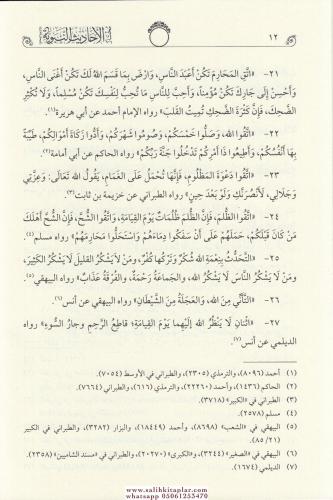 ١٢
الأحاديث النبوية
٢١- «اتَّقِ المَحَارِمَ تَكُنْ أَعْبَدَ النَّاسِ، وَارْضَ بِمَا قَسَمَ اللهُ لَكَ تَكُنْ أَغْنَى النَّاسِ،
وَأَحْسِنْ إِلَى جَارِكَ تَكُنْ مُؤْمِنًا، وَأَحِبَّ لِلنَّاسِ مَا تُحِبُّ لِنَفْسِكَ تَكُنْ مُسْلِمًا، وَلَا تُكْثِرِ
الضَّحِكَ، فَإِنَّ كَثْرَةَ الضَّحِكِ تُمِيتُ القَلْبَ» رواه الإمام أحمد عن أبي هريرة(١).
٢٢- «اتَّقُوا اللهَ، وَصَلُّوا خَمْسَكُمْ، وَصُومُوا شَهْرَكُمْ، وَأَدُّوا زَكَاةَ أَمْوَالِكُمْ، طَيِّبَةً
بِهَا أَنْفُسُكُمْ، وَأَطِيعُوا ذَا أَمْرِكُمْ تَدْخُلُوا جَنَّةَ رَبِّكُمْ» رواه الحاكم عن أبي أمامة(٢).
٢٣- «اتَّقُوا دَعْوَةَ المَظْلُومِ، فَإِنَّهَا تُحْمَلُ عَلَى الغَمَامِ، يَقُولُ اللهُ تَعَالَى: وَعِزَّتِي
وَجَلَالِي، لَأَنْصُرَنَّكِ وَلَوْ بَعْدَ حِينٍ» رواه الطبراني عن خزيمة بن ثابت(٣).
٢٤- «اتَّقُوا الظُّلْمَ، فَإِنَّ الظُّلْمَ ظُلُمَاتٌ يَوْمَ القِيَامَةِ، وَاتَّقُوا الشُّحَّ، فَإِنَّ الشُّحَّ أَهْلَكَ
مَنْ كَانَ قَبْلَكُمْ، حَمَلَهُمْ عَلَى أَنْ سَفَكُوا دِمَاءَهُمْ وَاسْتَحَلُّوا مَحَارِمَهُمْ» رواه مسلم(٤).
٢٥- «التَّحَدُّثُ بِنِعْمَةِ اللهِ شُكْرٌ وَتَرْكُهَا كُفْرٌ، وَمَنْ لَا يَشْكُرُ القَلِيلَ لَا يَشْكُرُ الكَثِيرَ،
وَمَنْ لَا يَشْكُرُ النَّاسَ لَا يَشْكُرُ اللهَ، والجَمَاعَةُ رَحْمَةٌ، وَالفُرْقَةُ عَذَابٌ» رواه البيهقي(٥).
٢٦- «التَّأَنِّي مِنَ اللهِ، وَالعَجَلَةُ مِنَ الشَّيْطَانِ» رواه البيهقي عن أنس(٦).
٢٧- «اثْنَانِ لَا يَنْظُرُ اللهُ إِلَيْهِمَا يَوْمَ القِيَامَةِ: قَاطِعُ الرَّحِمِ وجارُ السُّوءِ» رواه
الديلمي عن أنس(٧).
(١) أحمد (٨٠٩٦)، والترمذي (٢٣٠٥)، والطبراني في الأوسط (٧٠٥٤).
(٢) الحاكم (١٤٣٦)، وأحمد (٢٢٢٦٠)، والترمذي (٦١٦)، والطبراني (٧٦٦٤).
(٣) الطبراني في «الكبير» (٣٧١٨).
(٤) مسلم (٢٥٧٨).
(٥) البيهقي في «الشعب» (٨٦٩٨)، وأحمد (١٨٤٤٩)، والبزار (٣٢٨٢)، والطبراني في الكبير
(٢١/ ٨٥).
(٦) البيهقي في «الصغير» (٣٢٤٤)، و«الكبرى» (٢٠٢٧٠)، والطبراني في «مسند الشاميين» (٢٣٥٨).
(٧) الديلمي (١٦٧٤).
www.salihkitaplar.com
whatsapp 05061253470